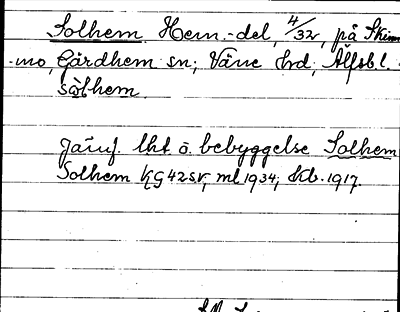 Solhem Hem.-del, 4/32, på Skim
-mo, Gärdhem sn, Väne hd, Älfsbl.
sòlhem
Jämf. lht ö. bebyggelse Solhem
Solhem KG 42 sv, ml 1934, Kb. 1917.